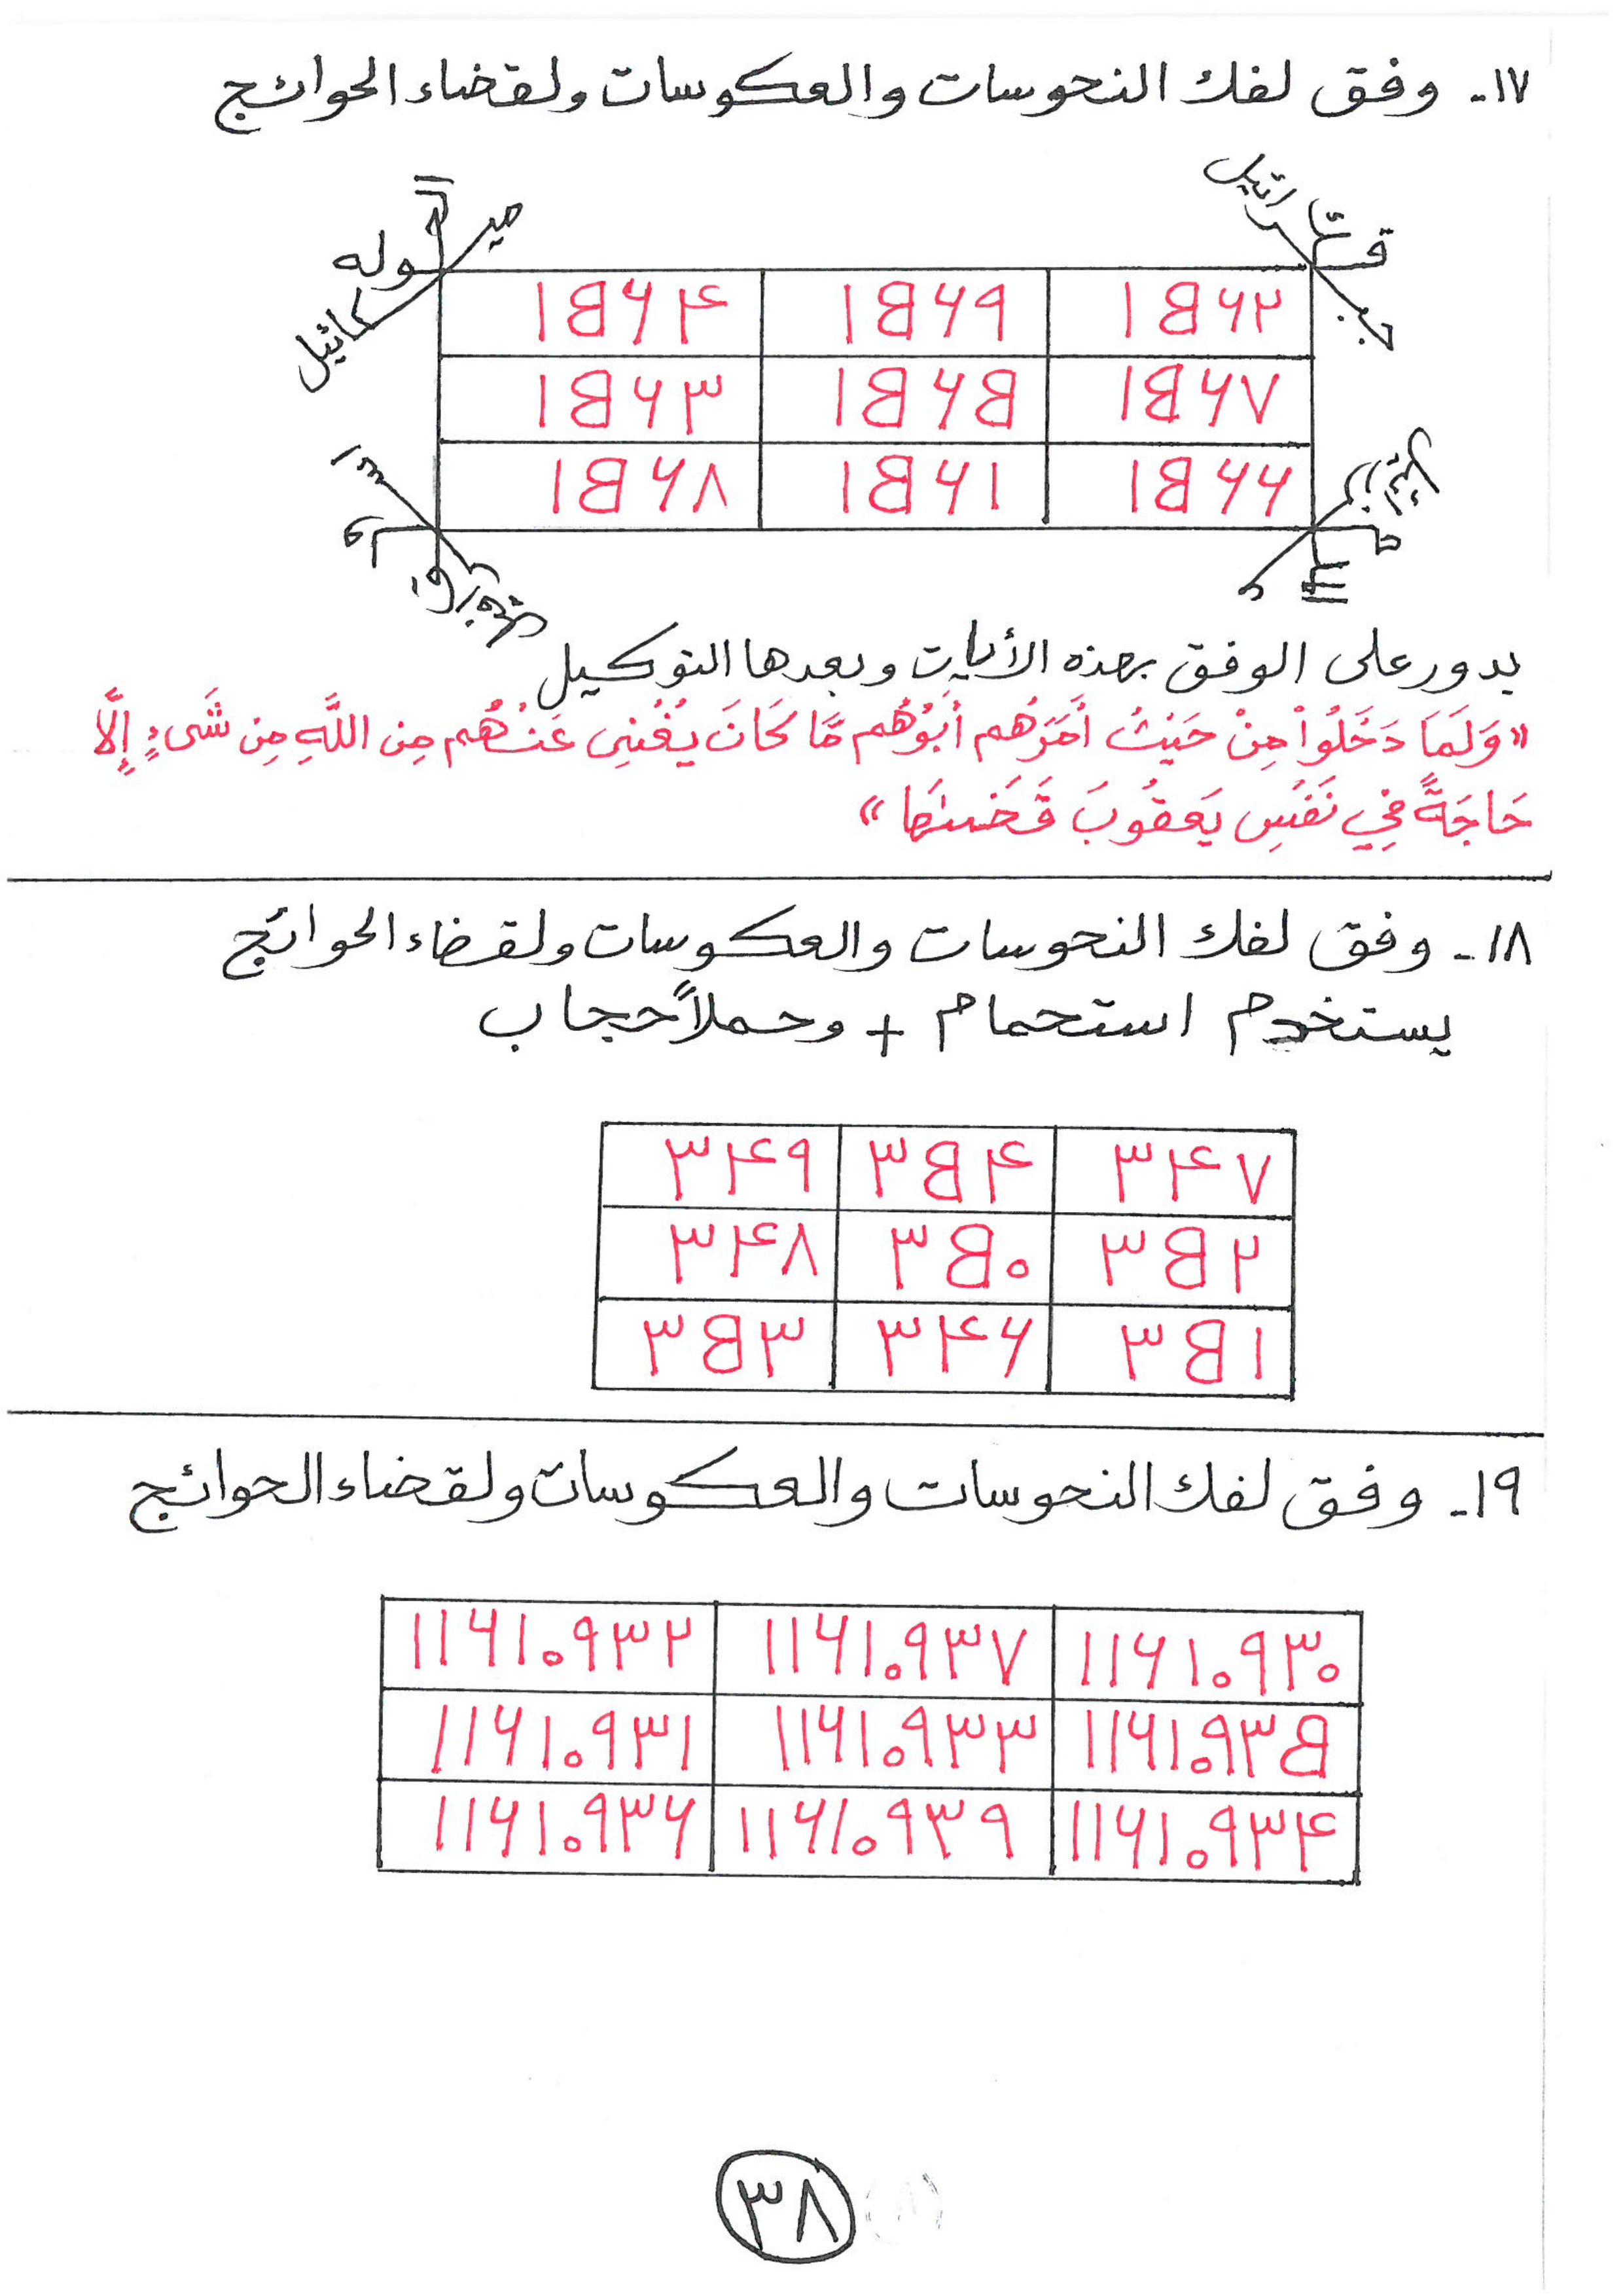 ١٧- وفق لفك النحوسات والعكوسات ولقضاء الحوائج
١٥٦٤ ١٥٦٩ ١٥٦٢
١٥٦٣ ١٥٦٥ ١٥٦٧
١٥٦٨ ١٥٦١ ١٥٦٦
يدور على الوفق بهذه الأيات وبعدها التوكيل
«وَلَمَا دَخَلُواْ مِنْ حَيْثُ أَمَرَهُم أَبُوُهُم مَّا كَانَ يُغُنِى عَنْهُم مِن اللَّهِ مِن شَىءٍ إِلَّا
حَاجَةً فِي نَفُسِ يَعقُوبَ قَضىٰهَا»
١٨- وفق لفك النحوسات والعكوسات ولقضاء الحوائج
يستخدم استحمام + وحملاً حجاب
٣٤٩ ٣٥٤ ٣٤٧
٣٤٨ ٣٥٠ ٣٥٢
٣٥٣ ٣٤٦ ٣٥١
١٩- وفق لفك النحوسات والعكوسات ولقضاء الحوائج
١١٦١٠٩٣٢ ١١٦١٠٩٣٧ ١١٦١٠٩٣٠
١١٦١٠٩٣١ ١١٦١٠٩٣٣ ١١٦١٠٩٣٥
١١٦١٠٩٣٦ ١١٦١٠٩٣٩ ١١٦١٠٩٣٤
٣٨